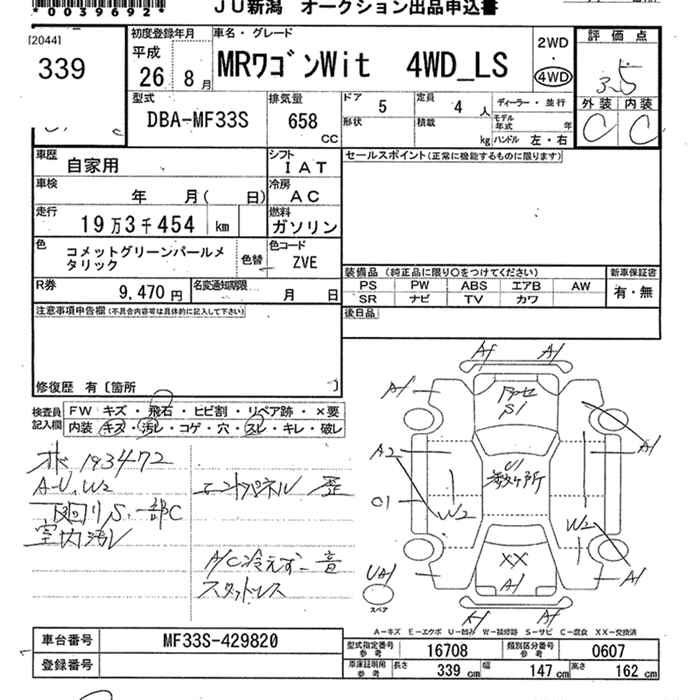 *0039692*
JU新潟 オークション出品申込書
[2044]
339
初度登録年月
平成
26 8月
車名・グレード
MRワゴンWit 4WD_LS
2WD
4WD
評価点
3.5
外装 内装
C C
型式
DBA-MF33S
排気量
658
CC
ドア
5
定員
4 人
形状
積載
kg
ディーラー・並行
モデル年式 年
ハンドル 左・右
車歴
自家用
シフト
IAT
セールスポイント(正常に機能するものに限ります)
車検
年 月( 日)
冷房
AC
走行
19万3千454 km
燃料
ガソリン
色
コメットグリーンパールメ
タリック
色替
色コード
ZVE
装備品(純正品に限り○をつけてください)
新車保証書
PS PW ABS エアB AW
SR ナビ TV カワ
有・無
R券
9,470円
名変通知期限
月 日
後日品
注意事項申告欄(不具合内容等は具体的に記入して下さい)
修復歴 有〔箇所 〕
検査員
記入欄
FW キズ・飛石・ヒビ割・リペア跡・×要
内装 キズ・汚レ・コゲ・穴・スレ・キレ・破レ
193472
A-U, W2
下廻りS.一部C
室内汚レ
エンドパネル 歪
A/C冷えず 音
スタッドレス
A1 A1
A1
S1
A1
A2
U1
数ヶ所
C1
W2
W2
XX
A1
A1
UA1
スペア
A1
A-キズ E-エクボ U-凹み W-補修跡 S-サビ C-腐食 XX-交換済
車台番号
MF33S-429820
登録番号
型式指定番号
参考
16708
類別区分番号
参考
0607
車庫証明用
参考
長さ
339 cm
幅
147 cm
高さ
162 cm